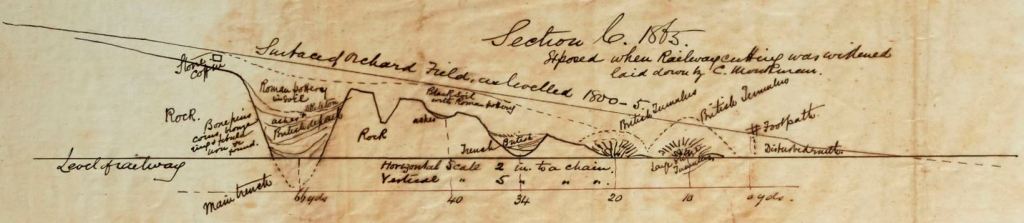 Section C. 1865.
Exposed when Railway cutting was widened
laid down by C. Monkman.
Surface of Orchard Field, as levelled 1800-5
Stone
Coffin
Roman pottery
in soil
ashes
British deposit
Rock.
Bone pins
coins, bronze
rings &
iron
found.
Rock
Black soil
with Roman pottery
ashes
Trench
British
British Tumulus
British Tumulus
Footpath
Disturbed
Level of railway
Horizontal Scale 2 in. to a chain.
Vertical " 5 " " "
Main trench
66 yds
40
34
20
10
0 yds.